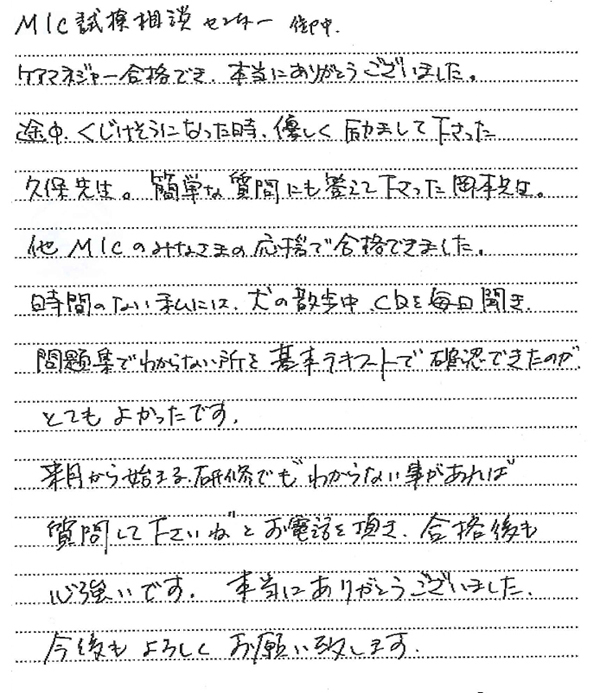 MIC試験相談センター 御中.
ケアマネジャー合格でき、本当にありがとうございました。
途中、くじけそうになった時、優しく励まして下さった
久保先生。簡単な質問にも答えて下さった岡本先生。
他MICのみなさまの応援で合格できました。
時間のない私には、犬の散歩中、CDを毎日聞き、
問題集でわからない所を基本テキストで確認できたのが、
とてもよかったです。
来月から始まる、研修でも"わからない事があれば
質問して下さいね"とお電話を頂き、合格後も
心強いです。本当にありがとうございました。
今後もよろしくお願い致します。